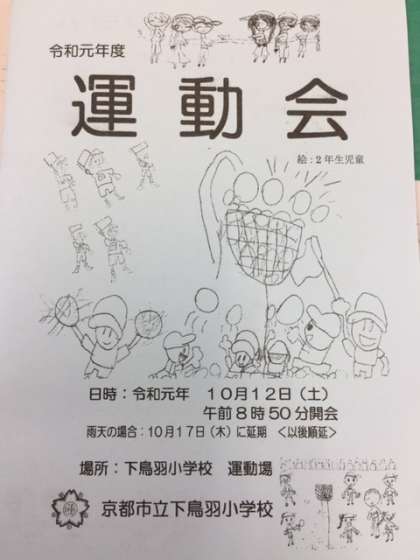 令和元年度
運動会
絵:2年生児童
日時:令和元年 10月12日(土)
午前8時50分開会
雨天の場合:10月17日(木)に延期 <以後順延>
場所:下鳥羽小学校 運動場
京都市立下鳥羽小学校